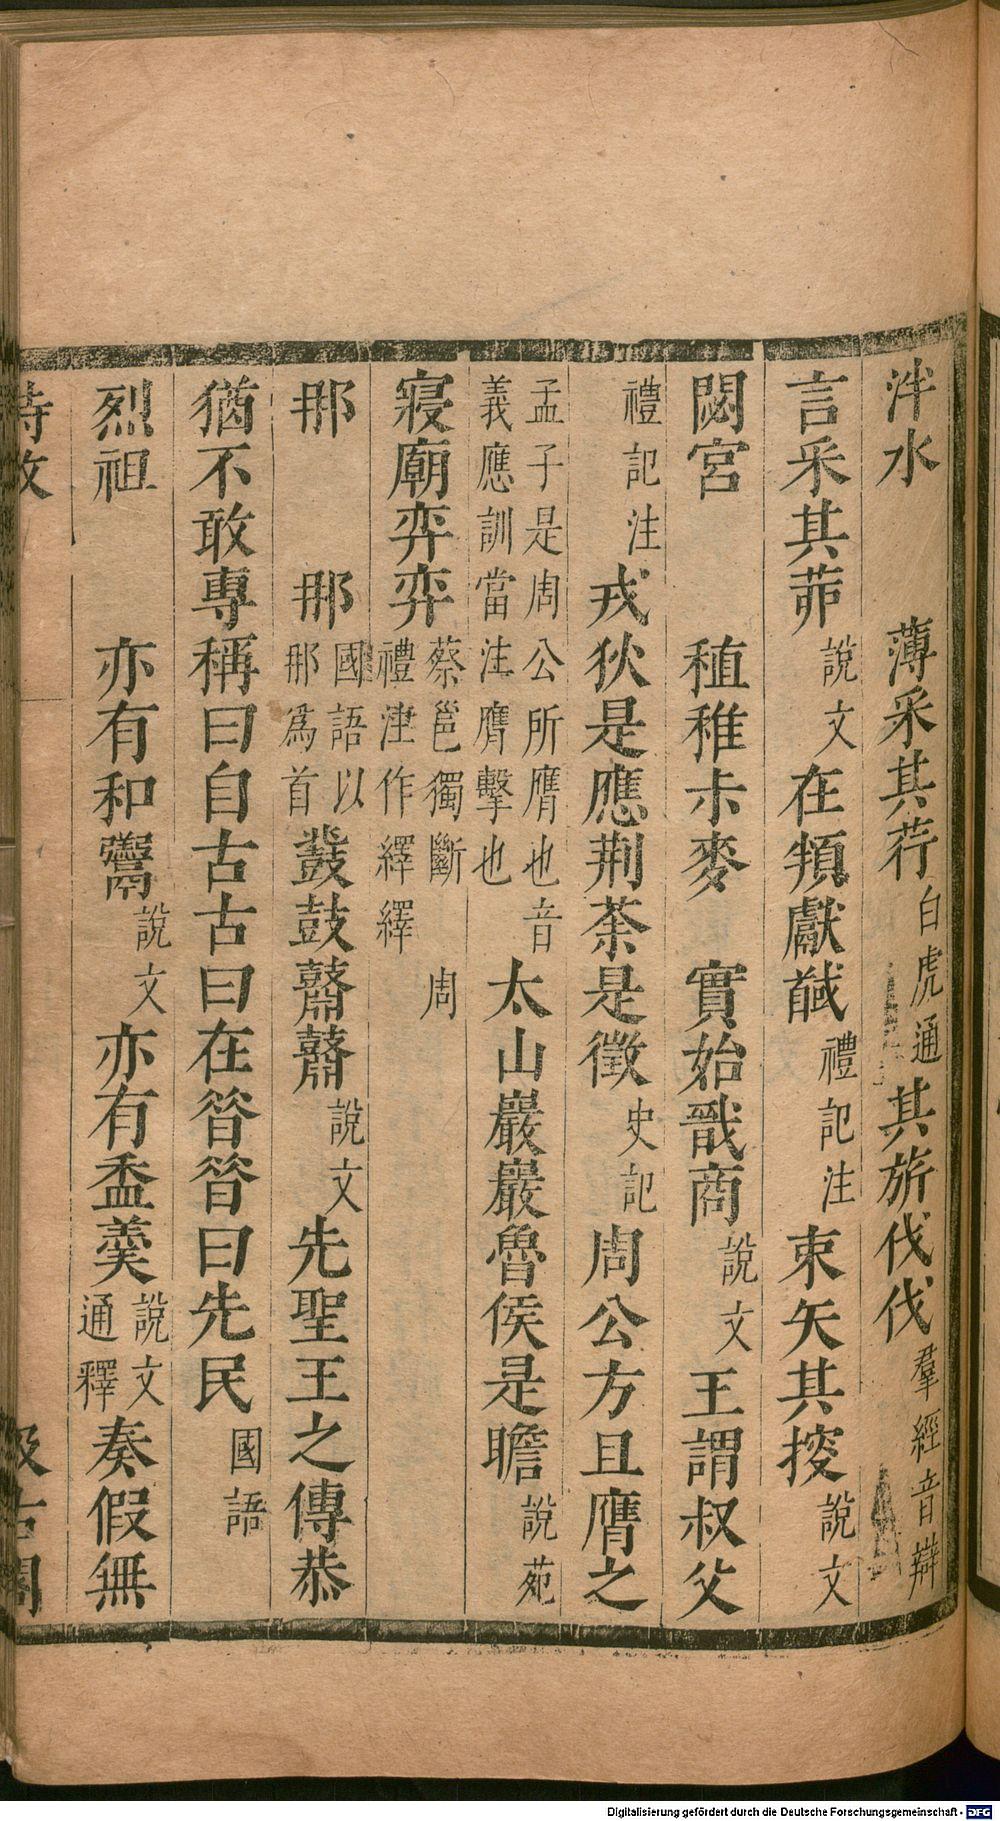 泮水　薄采其荇白虎通其旂伐伐羣經音辯
言采其茆說文在頖獻馘禮記注束矢其捘說文
閟宮　稙稚尗麥　實始戩商說文王謂叔父
禮記注戎狄是應荆荼是徵史記周公方且膺之
孟子是周公所膺也音
義應訓當注膺擊也
太山巖巖魯侯是瞻說苑
寢廟弈弈
蔡邕獨斷　周
禮注作繹繹
那　那
國語以
那爲首
鼗鼓鼘鼘說文先聖王之傳恭
猶不敢專稱曰自古古曰在昝昝曰先民國語
烈祖　亦有和鬻說文亦有盉羹
說文
通釋
奏假無
詩攷　汲古閣
Digitalisierung gefördert durch die Deutsche Forschungsgemeinschaft - DFG